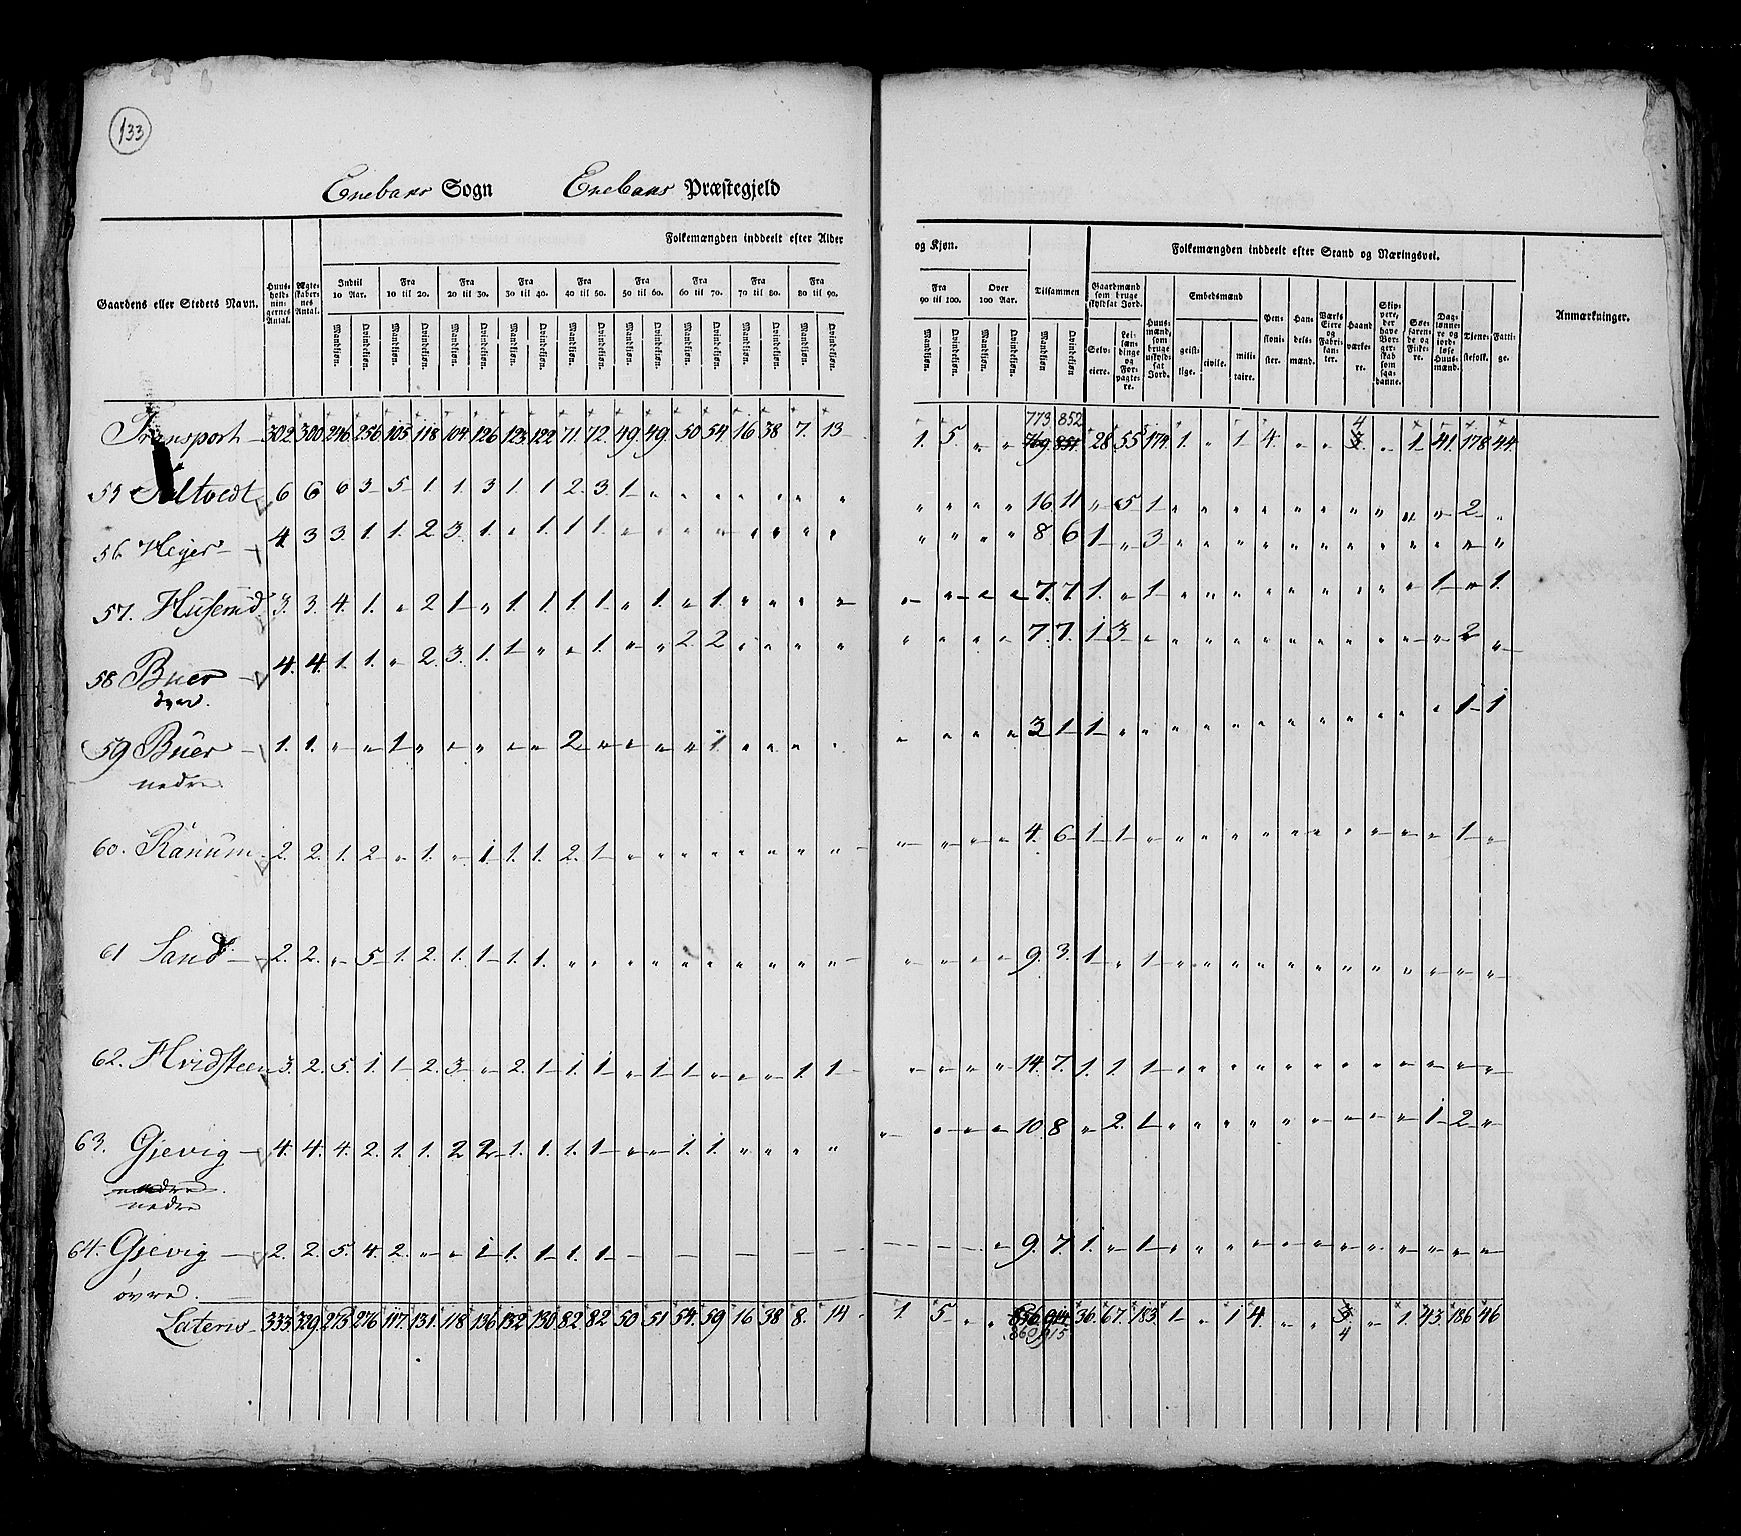 133
Enebaks Sogn Enebaks Præstegjeld
Gaardens eller Stedets Navn.
Huusholdningernes Antal.
Ægteskabernes Antal.
Folkemængden inddeelt efter Alder og Kjøn.
Indtil 10 Aar. Fra 10 til 20. Fra 20 til 30. Fra 30 til 40. Fra 40 til 50. Fra 50 til 60. Fra 60 til 70. Fra 70 til 80. Fra 80 til 90. Fra 90 til 100. Over 100 Aar. Tilsammen
Mandkjøn. Qvindekjøn. Mandkjøn. Qvindekjøn. Mandkjøn. Qvindekjøn. Mandkjøn. Qvindekjøn. Mandkjøn. Qvindekjøn. Mandkjøn. Qvindekjøn. Mandkjøn. Qvindekjøn. Mandkjøn. Qvindekjøn. Mandkjøn. Qvindekjøn. Mandkjøn. Qvindekjøn. Mandkjøn. Qvindekjøn. Mandkjøn Qvindekjøn.
Folkemængden inddeelt efter Stand og Næringsvei.
Gaardmænd som bruge skyldsat Jord.
Selveiere. Leilændinge og Forpagtere.
Huusmænd, som bruge uskyldsat Jord.
Embedsmænd
geistlige. civile. militaire.
Pensionister. Handelsmænd. Værks Eiere og Fabrikanter. Haandværkere. Skippere, der have Borgerskab som saadanne. Søefarende og Fiskere. Daglønnere og jordløse Huusmænd. Tjenestefolk. Fattige.
Anmærkninger.
773 852 4
Transport 302 300 246 256 105 118 104 126 123 122 71 72 49 49 50 54 16 38 7 13 1. 5 " " 769 851 28 55 174 1 " 1 4 " " 3 " 1 41 178 44
55 6 6 6 3 5 1 1 3 1 1 2 3 1 " " " " " " " " " " " 16 11 " 5 1 " " " " " " " " " " 2 "
56 Heyer 4 3 3 1 1 2 3 1 " 1 1 1 " " " " " " " " " " " " 8 6 1 " 3 " " " " " " " " " " " "
57. Huserud 3 3 4 1 " 2 1 " 1 1 1 1 " 1 " 1 " " " " " " " " 7 7 1 " 1 " " " " " " " " " 1 " 1
58 Buer 4 4 1 1 " 2 3 1 1 " " 1 " " 2 2 " " " " " " " " 7 7 1 3 " " " " " " " " " " " 2 "
59 Buer 1 1 " " 1 " " " " " 2 " " " " 1 " " " " " " " " 3 1 1 " " " " " " " " " " " " 1 1
nedre
60. Ranum 2 2 1 2 " 1 " 1 1 1 2 1 " " " " " " " " " " " " 4 6 1 1 " " " " " " " " " " " 1 "
61 Sand 2 2 " 5 1 2 1 1 1 1 " " " " " " " " " " " " " " 9 3 1 " 1 " " " " " " " " " " " "
62. Hvidsteen 3 2 5 1 1 2 3 " 2 1 1 1 " 1 1 " " " 1 1 " " " " 14 7 1 1 1 " " " " " " " " " " " "
63. Gjevig 4 4 4 2 1 1 2 2 1 1 1 1 " " 1 1 " " " " " " " " 10 8 " 2 1 " " " " " " " " " 1 2 "
nedre
64. Gjevig 2 2 5 4 2 " " 1 1 1 1 1 — — — — " 9 7 1 " 1 " " " " " " " " " " " "
øvre
Lateris 333 329 273 276 117 131 118 136 132 130 82 82 50 51 54 59 16 38 8 14 1 5 " " 856 914 36 67 183 1 " 1 4 " " 3 " 1 43 186 46
860 915 4